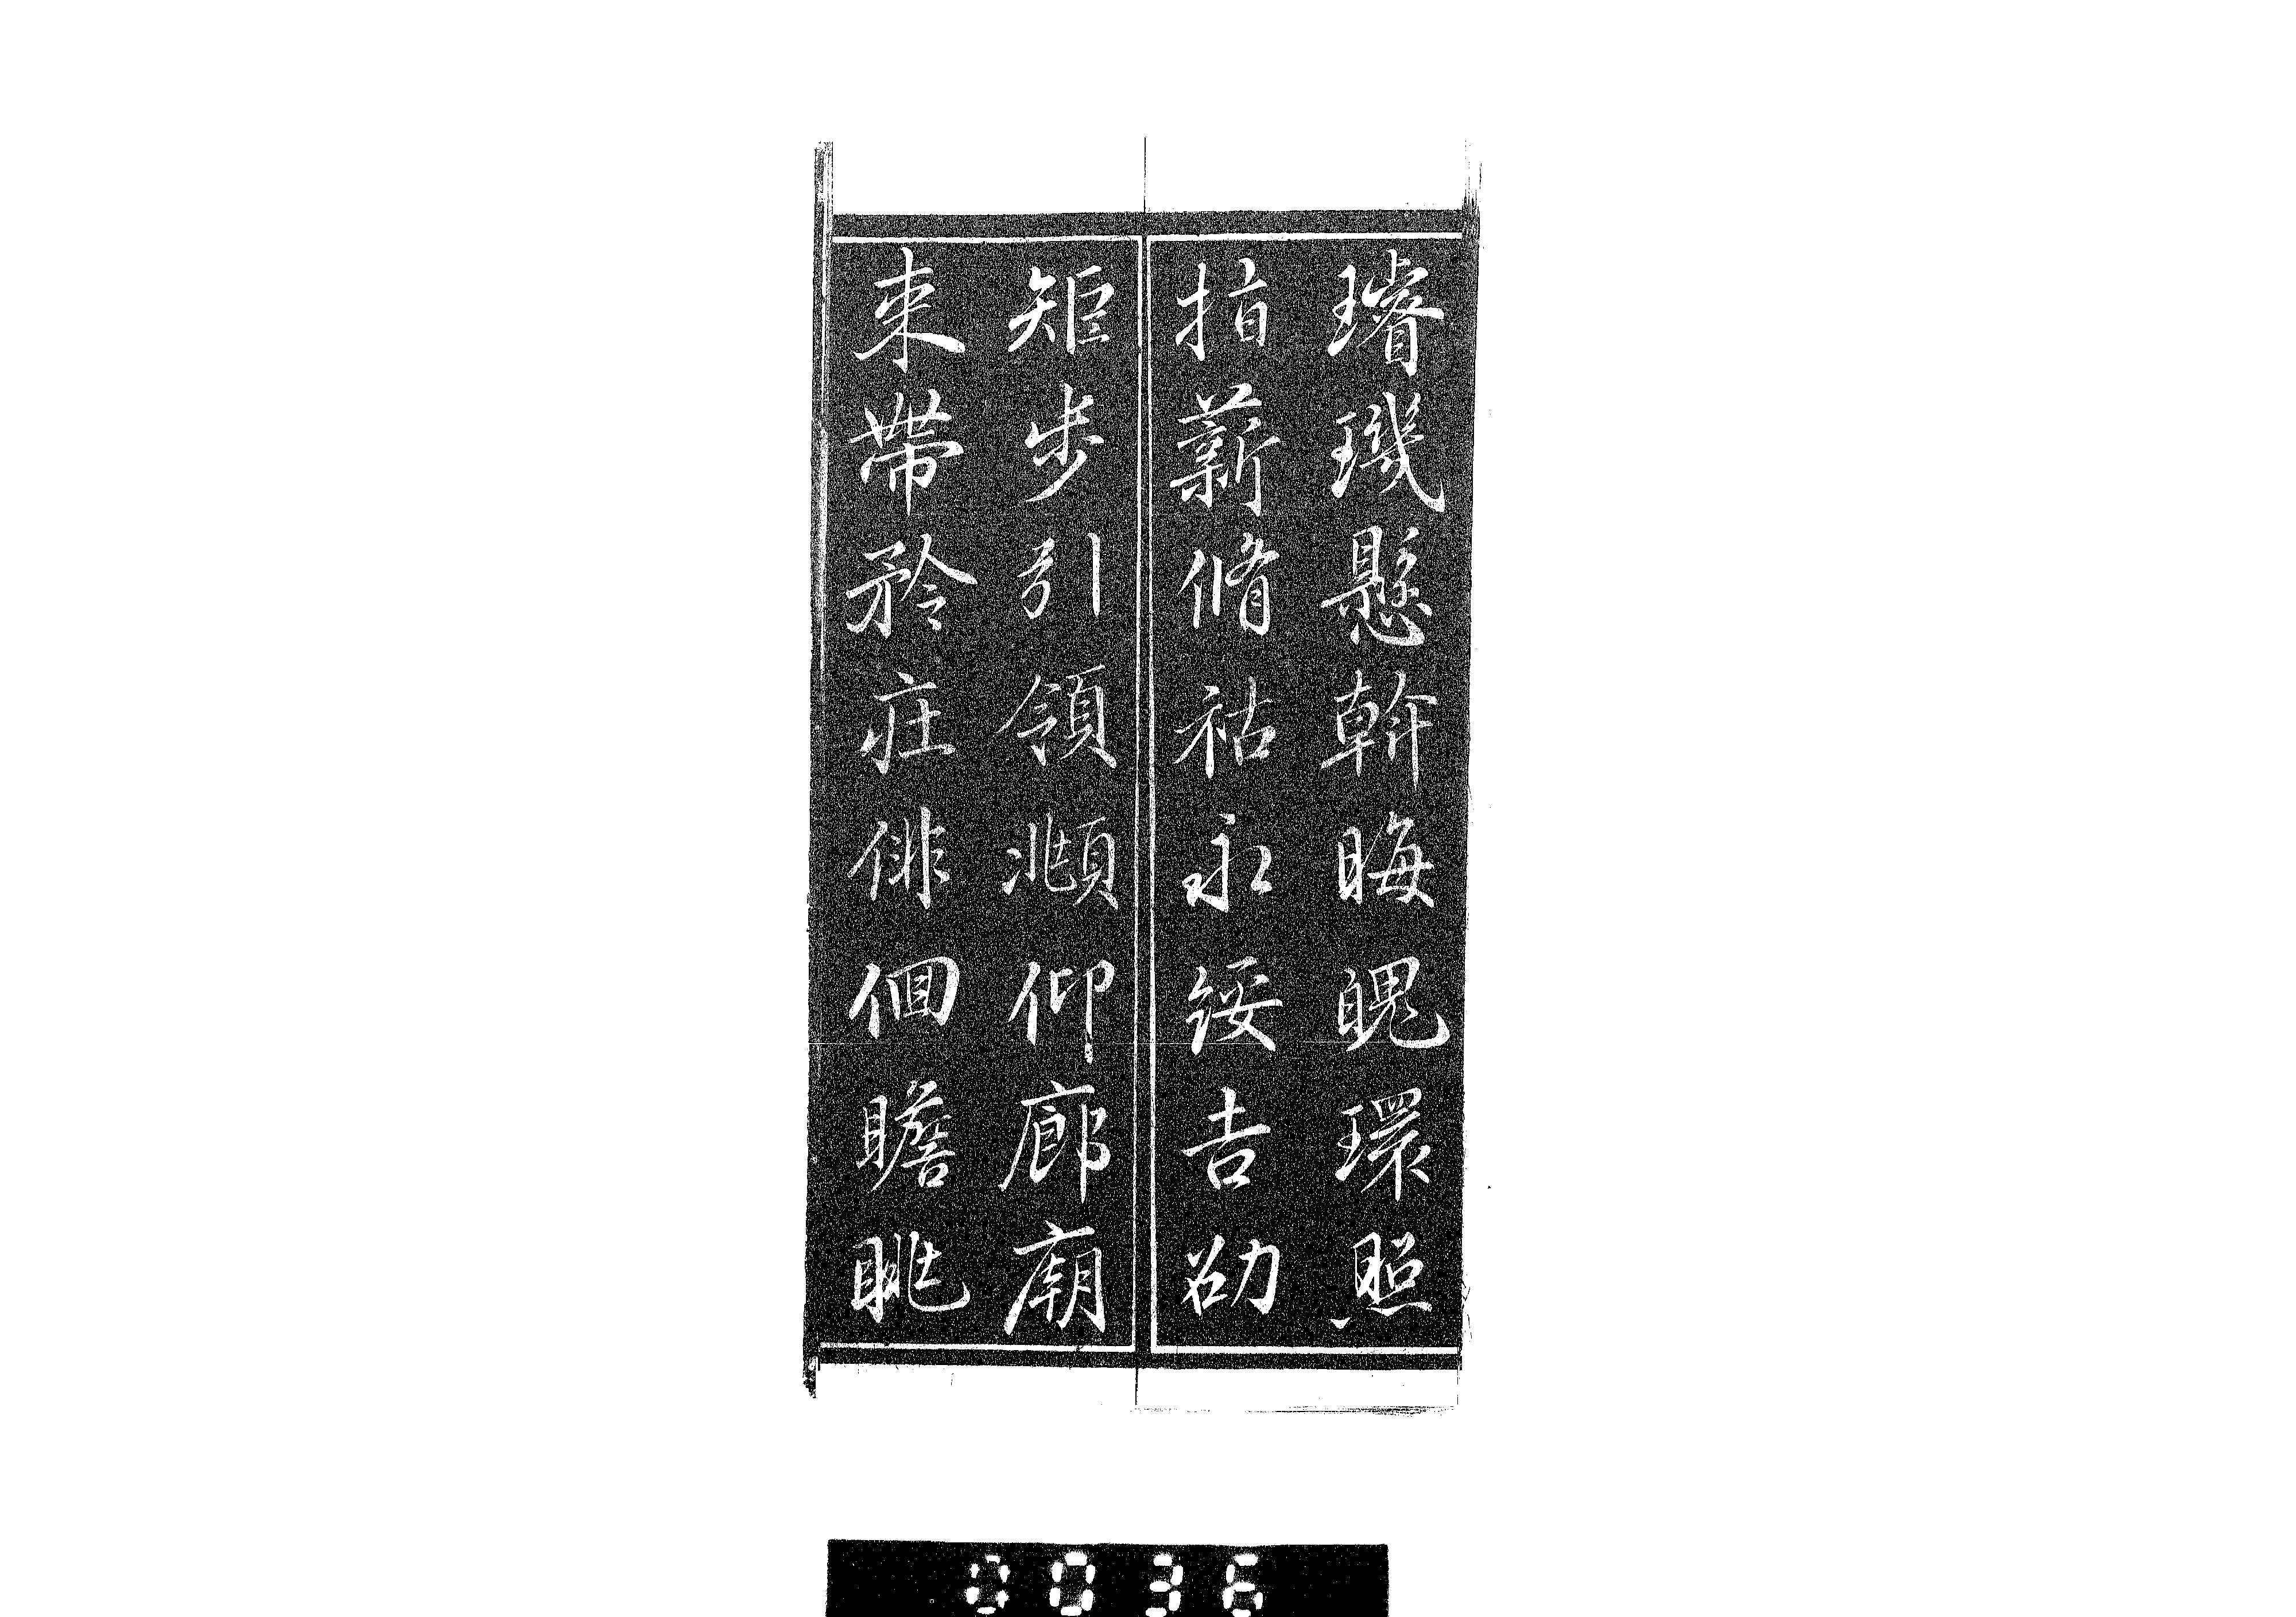 璿璣懸斡晦魄環照
指薪脩祜永綏吉劭
矩步引領頫仰廊廟
束帶矜莊俳佪瞻眺
0036